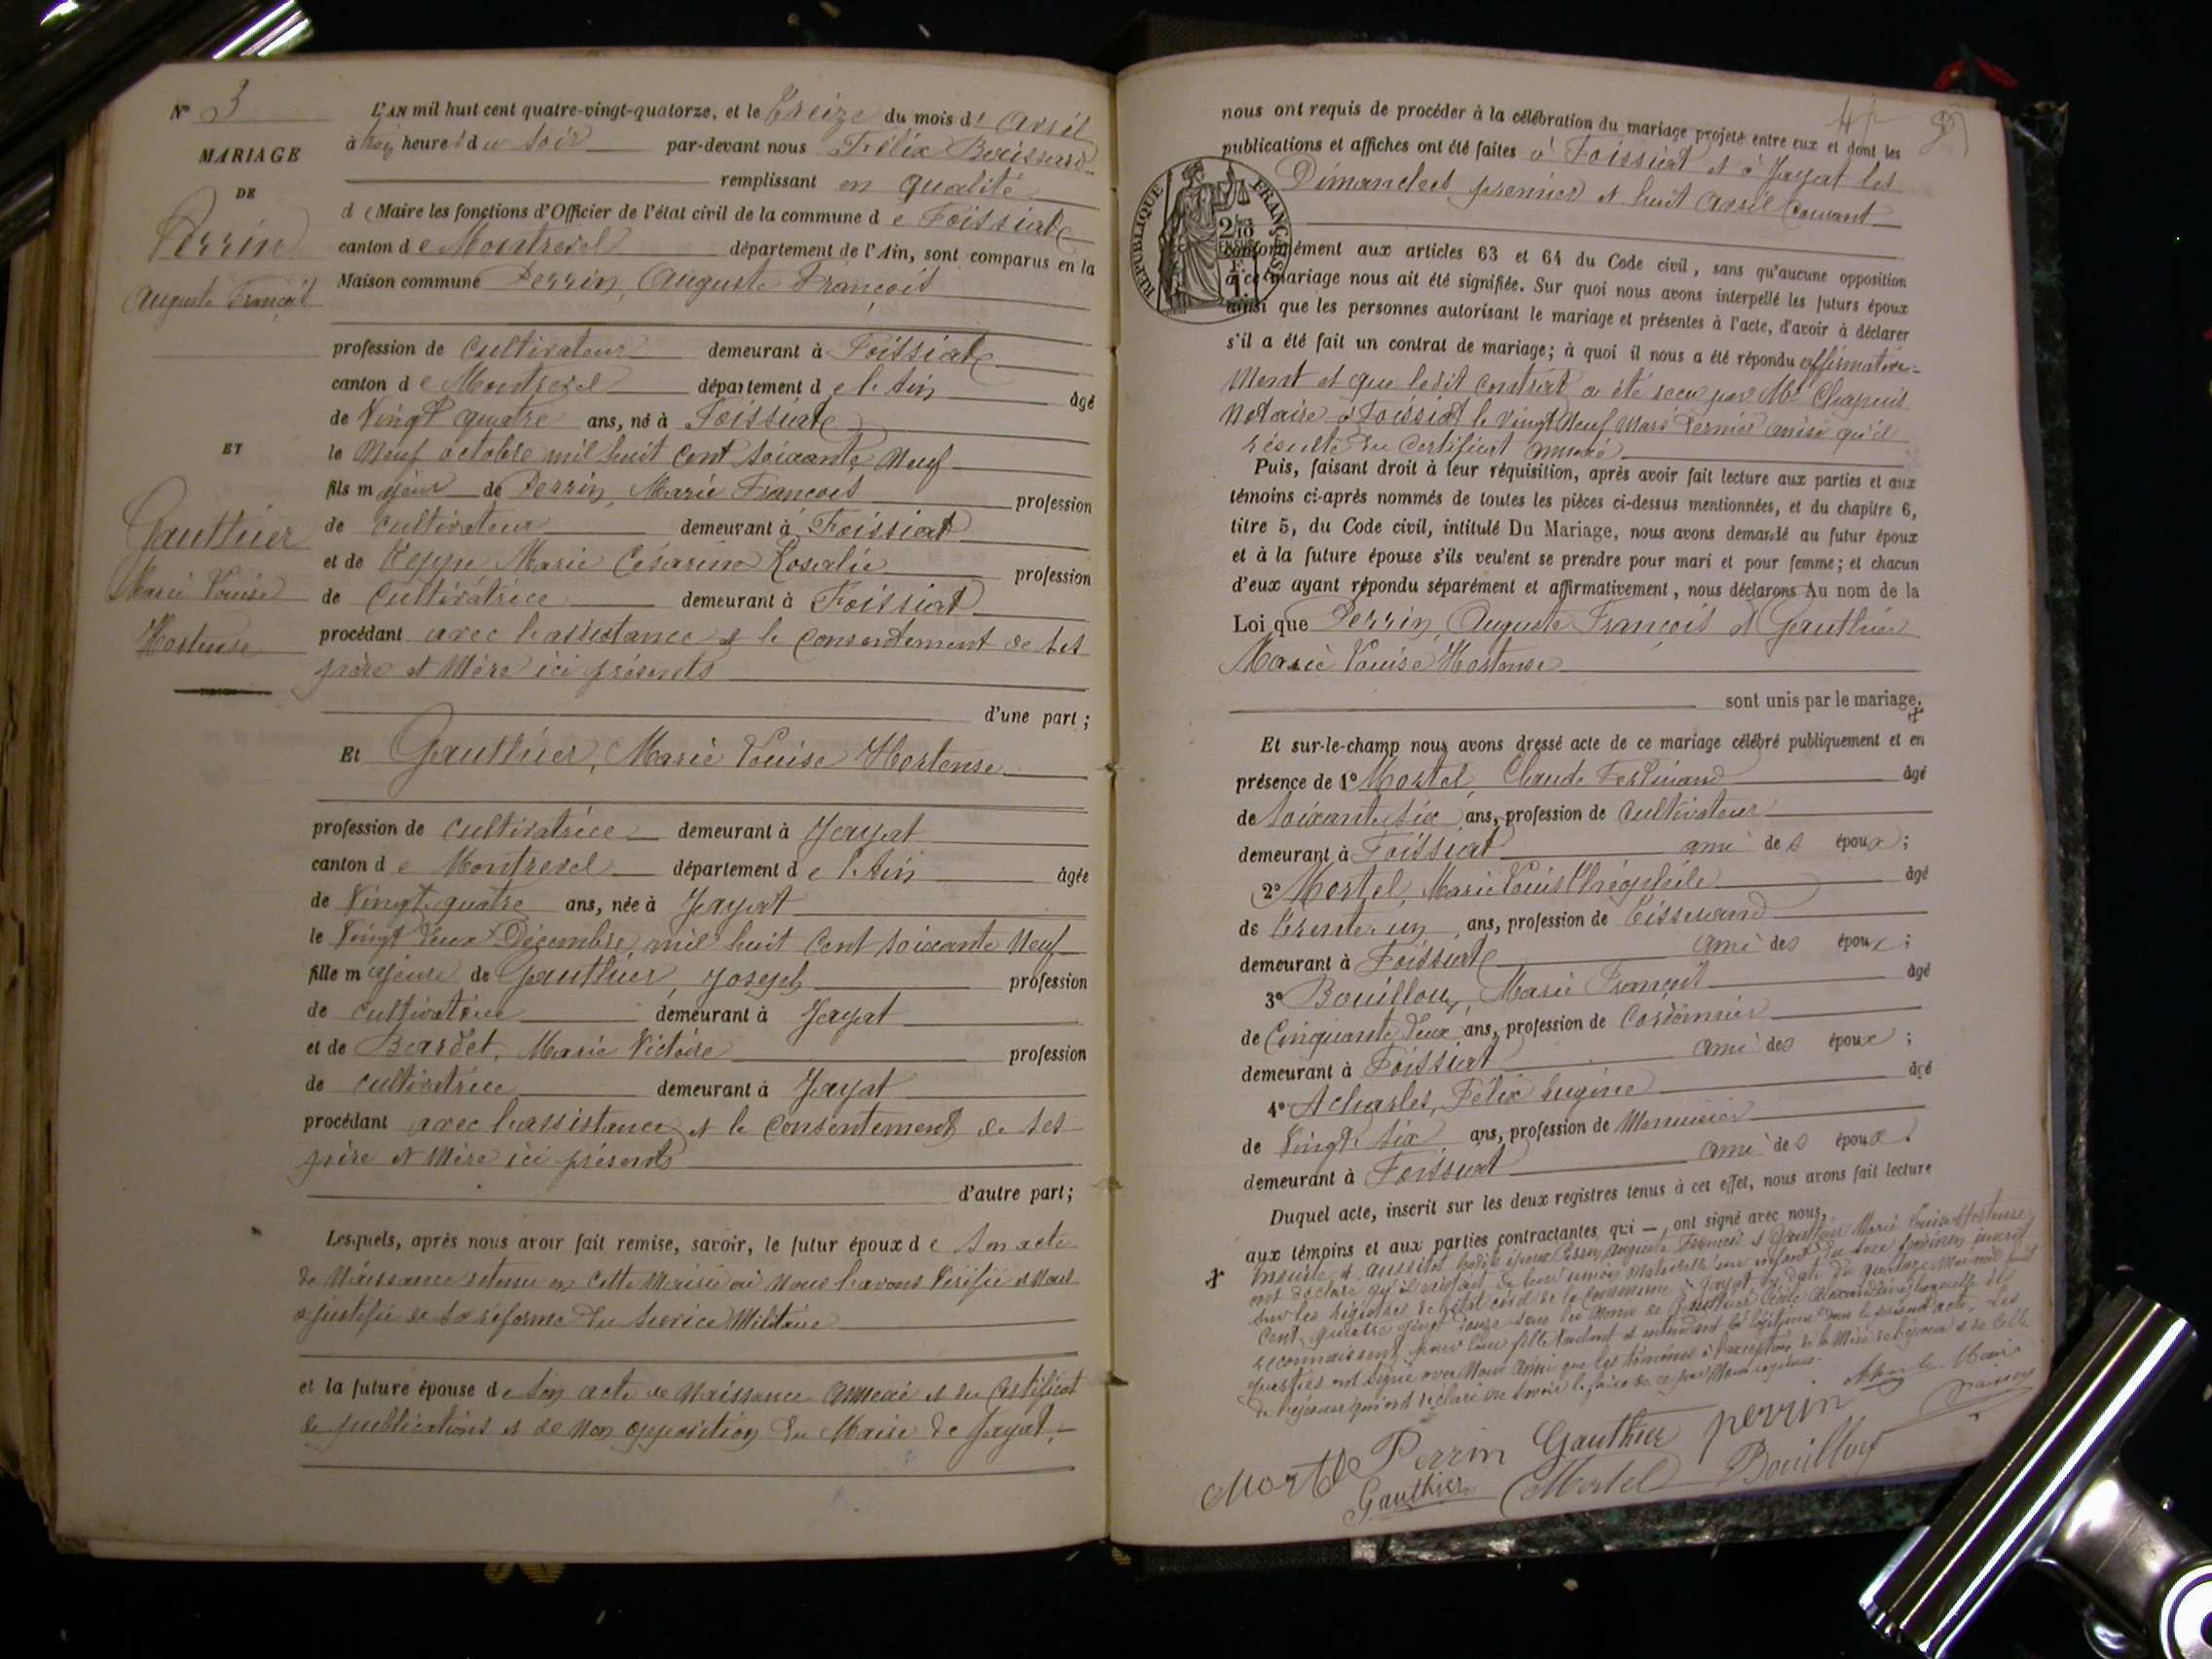 N° 3
MARIAGE
DE
Perrin
Auguste François
ET
Gauthier
Marie Louise
Hortense
L'AN mil huit cent quatre-vingt-quatorze, et le Treize du mois d' Avril
à trois heures du soir par-devant nous Félix Bouissard
remplissant en qualité
de Maire les fonctions d'Officier de l'état civil de la commune de Foissiat
canton de Montrevel département de l'Ain, sont comparus en la
Maison commune Perrin, Auguste François
profession de cultivateur demeurant à Foissiat
canton de Montrevel département de l'Ain âgé
de Vingt quatre ans, né à Foissiat
le Neuf octobre mil huit cent soixante Neuf
fils majeur de Perrin, Marie François profession
de cultivateur demeurant à Foissiat
et de Teppe Marie Césarine Rosalie profession
de Cultivatrice demeurant à Foissiat
procédant avec l'assistance et le consentement de ses
père et Mère ici présents
d'une part ;
Et Gauthier, Marie Louise Hortense
profession de cultivatrice demeurant à Jayat
canton de Montrevel département de l'Ain âgée
de Vingt quatre ans, née à Jayat
le Vingt Deux Décembre mil huit Cent soixante Neuf
fille majeure de Gauthier, Joseph profession
de cultivateur demeurant à Jayat
et de Bardet, Marie Victoire profession
de cultivatrice demeurant à Jayat
procédant avec l'assistance et le Consentement de ses
père et Mère ici présents
d'autre part ;
Lesquels, après nous avoir fait remise, savoir, le futur époux de son acte
de Naissance retenu en cette Mairie où Nous l'avons Vérifié et Nous
a justifié de sa réforme du service Militaire
et la future épouse de son acte de Naissance annexé et du Certificat
de publications et de Non opposition du Maire de Jayat,
nous ont requis de procéder à la célébration du mariage projeté entre eux et dont les
publications et affiches ont été faites à Foissiat et à Jayat les
Dimanches premier et huit avril courant
RÉPUBLIQUE FRANÇAISE
conformément aux articles 63 et 64 du Code civil, sans qu'aucune opposition
à ce mariage nous ait été signifiée. Sur quoi nous avons interpellé les futurs époux
ainsi que les personnes autorisant le mariage et présentes à l'acte, d'avoir à déclarer
s'il a été fait un contrat de mariage; à quoi il nous a été répondu affirmative-
ment et que ledit Contrat a été reçu par Me Chapuis
Notaire à Foissiat le Vingt Neuf Mars Dernier ainsi qu'il
résulte du Certificat annexé
Puis, faisant droit à leur réquisition, après avoir fait lecture aux parties et aux
témoins ci-après nommés de toutes les pièces ci-dessus mentionnées, et du chapitre 6,
titre 5, du Code civil, intitulé Du Mariage, nous avons demandé au futur époux
et à la future épouse s'ils veulent se prendre pour mari et pour femme; et chacun
d'eux ayant répondu séparément et affirmativement, nous déclarons Au nom de la
Loi que Perrin, Auguste François et Gauthier
Marie Louise Hortense
sont unis par le mariage.
Et sur-le-champ nous avons dressé acte de ce mariage célébré publiquement et en
présence de 1° Mortel, Claude Ferdinand âgé
de soixante six ans, profession de cultivateur
demeurant à Foissiat ami des époux ;
2° Mortel, Marie Louis Théophile âgé
de Trente un ans, profession de Tisserand
demeurant à Foissiat ami des époux ;
3° Bouilloux, Marie François âgé
de Cinquante Deux ans, profession de Cordonnier
demeurant à Foissiat ami des époux ;
4° Acharles, Félix Eugène âgé
de Vingt Six ans, profession de Menuisier
demeurant à Foissiat ami des époux.
Duquel acte, inscrit sur les deux registres tenus à cet effet, nous avons fait lecture
aux témoins et aux parties contractantes, qui —, ont signé avec nous,
Ensuite et aussitôt lesdits époux Perrin, Auguste François et Gauthier Marie Louise Hortense
ont déclaré qu'il existait de leur union Naturelle un enfant du sexe féminin inscrit
sur les registres de l'état civil de la Commune de Jayat en date du quatorze Mai mil huit
Cent quatre vingt Douze sous les Noms de Gauthier Alexandrine laquelle ils
reconnaissent pour leur fille Voulant et entendant la légitimer dans le présent acte. Les
parties ont signé avec Nous ainsi que les témoins à l'exception de la Mère de l'époux et de celle
de l'épouse qui ont déclaré ne savoir le faire de ce par Nous requises.
Le Maire
Mortel Perrin Gauthier perrin
Gauthier Mortel Bouilloux